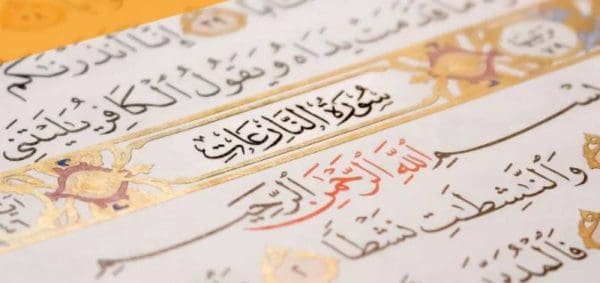 ٣٩ إِنَّا أَنذَرْنَٰكُمْ
مَا قَدَّمَتْ يَدَاهُ وَيَقُولُ ٱلْكَافِرُ يَٰلَيْتَنِي
سُورَةُ النَّازِعَاتِ
٤٦
بِسْمِ ٱللَّهِ ٱلرَّحْمَٰنِ ٱلرَّحِيمِ
وَٱلنَّٰشِطَٰتِ نَشْطًا ٢